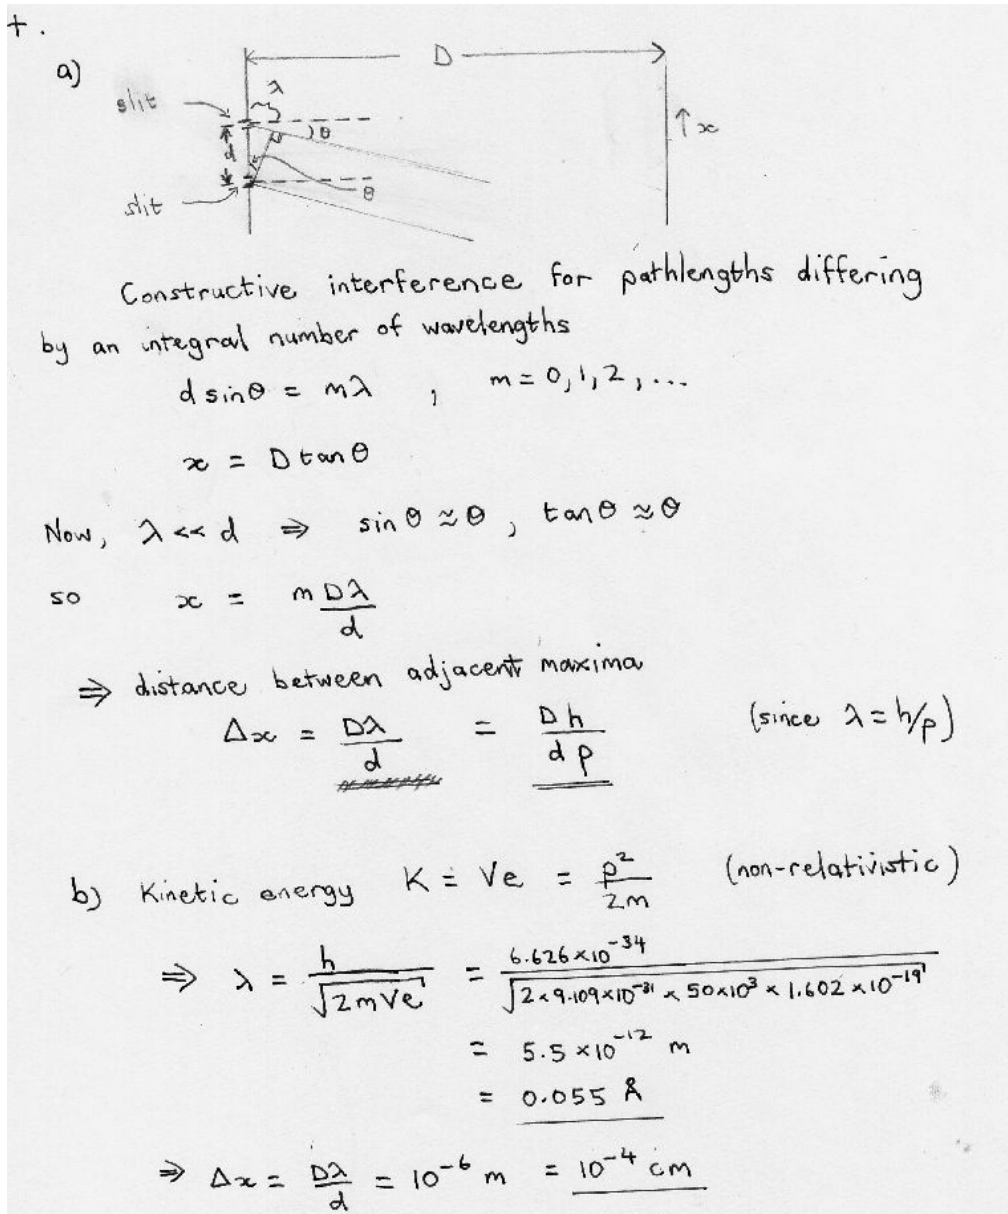 +.
a)
D
λ
slit
θ
↑ x
d
θ
slit
Constructive interference for pathlengths differing
by an integral number of wavelengths
d sinθ = mλ , m = 0, 1, 2, ...
x = D tan θ
Now, λ << d ⇒ sin θ ≈ θ , tan θ ≈ θ
so x = m Dλ / d
⇒ distance between adjacent maxima
Δx = Dλ / d = D h / d p (since λ = h/p)
b) Kinetic energy K = Ve = p² / 2m (non-relativistic)
⇒ λ = h / √2mVe = 6.626 × 10⁻³⁴ / √2 × 9.109 × 10⁻³¹ × 50 × 10³ × 1.602 × 10⁻¹⁹
= 5.5 × 10⁻¹² m
= 0.055 Å
⇒ Δx = Dλ / d = 10⁻⁶ m = 10⁻⁴ cm